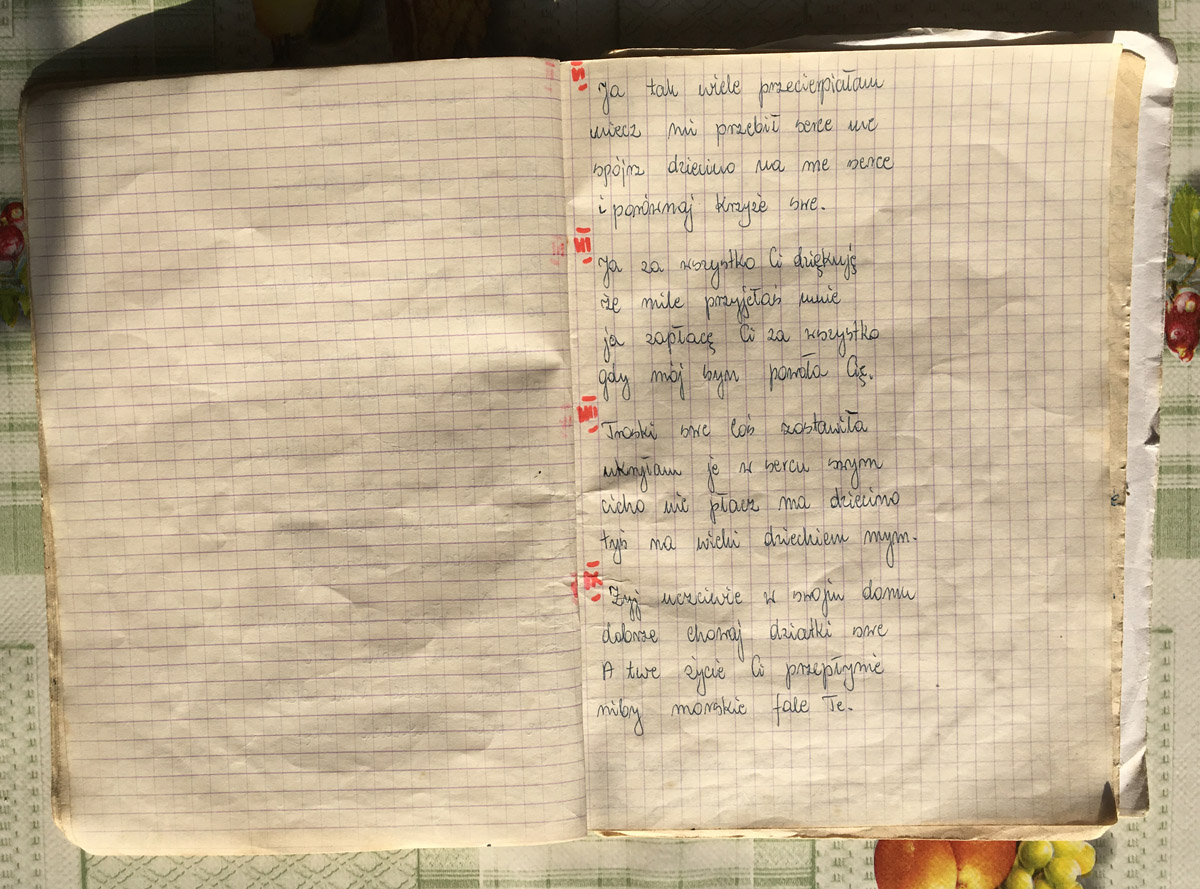 Ja tak wiele przecierpiałam
miecz mi przebił serce me
spójrz dziecino na me serce
i porównaj krzyże swe.
Ja za wszystko Ci dziękuję
że mile przyjęłaś mnie
ja zapłacę Ci za wszystko
gdy mój syn powoła Cię.
Troski swe coś zostawiła
ukryłam je w sercu swym
cicho nie płacz ma dziecino
tyś na wieki dzieckiem mym.
IX
Żyj uczciwie w swoim domu
dobrze chowaj dziatki swe
A twe życie Ci przepłynie
niby morskie fale Te.